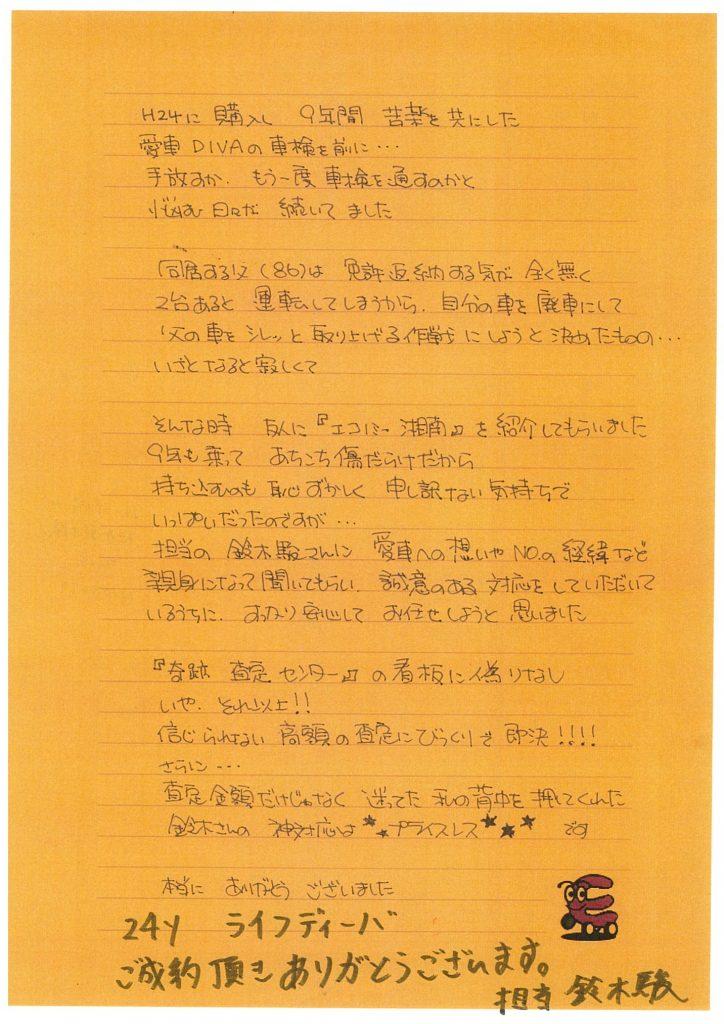 H24に 購入し 9年間 苦楽を共にした
愛車DIVAの車検を前に…
手放すか、もう一度 車検を通すのかと
悩む日々が 続いてました
同居する父(86)は 免許返納する気が 全く無く
2台あると 運転してしまうから、自分の車を廃車にして
父の車をシレッと取り上げる作戦 にしようと決めたもの…
いざとなると寂しくて
そんな時 友人に『エコハミー湘南』を紹介してもらいました
9年も乗って あちこち傷だらけだから
持ち込むのも 恥ずかしく 申し訳ない気持ちで
いっぱいだったのですが…
担当の 鈴木駿さんに 愛車への想いやNO.の経緯など
親身になって聞いてもらい、誠意のある対応をしていただいて
いるうちに、すっかり安心して お任せしようと 思いました
『奇跡 査定センター』の看板に偽りなし
いや、それ以上!!
信じられない 高額の査定にびっくりで即決!!!!
さらに…
査定金額だけじゃなく 迷ってた私の背中を押してくれた
鈴木さんの 神対応は★★プライスレス★★★です
本当に ありがとう ございました
24y ライフディーバ
ご成約頂きありがとうございます。
担当 鈴木駿